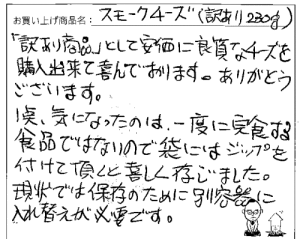 お買い上げ商品名：スモークチーズ(訳あり230g)
「訳あり商品」として安価に良質なチーズを
購入出来て喜んでおります。ありがとう
ございます。
1点、気になったのは、一度に完食する
食品ではないので袋にはジップを
付けて頂くと嬉しく存じました。
現状では保存のために別容器に
入れ替えが必要です。